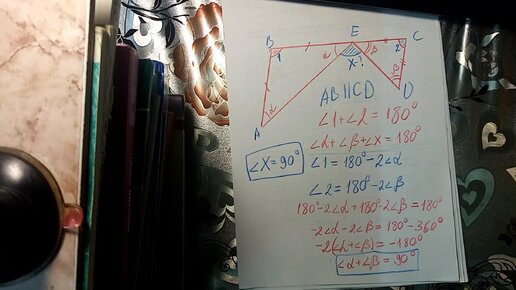 B E C
1 α X-? β 2
α A β D
AB||CD
∠1+∠2=180°
∠α+∠β+∠X=180°
∠X=90°
∠1=180°-2∠α
∠2=180°-2∠β
180°-2∠α+180°-2∠β=180°
-2∠α-2∠β=180°-360°
-2(∠α+∠β)=-180°
∠α+∠β=90°